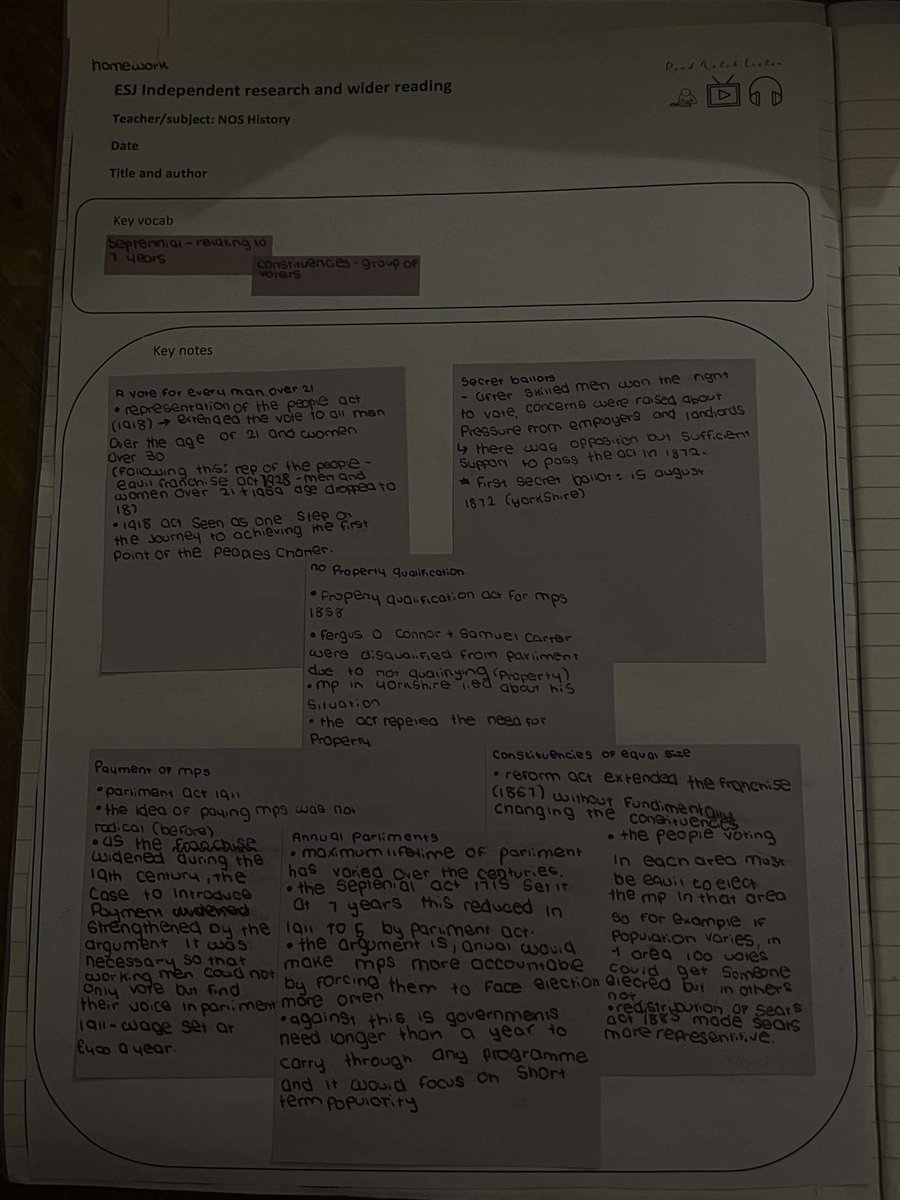 homework
Read Watch Listen
ESJ Independent research and wider reading
Teacher/subject: NOS History
Date
Title and author
Key vocab
Septennial - relating to
7 years
constituencies - group of
voters
Key notes
A vote for every man over 21
• representation of the people act
(1918) → extended the vote to all men
over the age of 21 and women
over 30
(following this: rep of the people -
equil franchise act 1928 - men and
women over 21 + 1969 age dropped to
18)
• 1918 act seen as one step on
the journey to achieving the first
point of the peoples charter.
Secret ballots
- after skilled men won the right
to vote, concerns were raised about
pressure from employers and landlords
↳ there was opposition but sufficient
support to pass the act in 1872.
* first secret ballot: 15 august
1872 (yorkshire)
no Property qualification
• Property qualification act for mps
1858
• fergus O Connor + Samuel Carter
were disqualified from parliment
due to not qualifying (Property)
• mp in yorkshire lied about his
situation
• the act repeled the need for
Property
Payment of mps
• parliment act 1911
• the idea of paying mps was not
radical (before)
• as the franchise
widened during the
19th century, the
case to introduce
payment
strengthened by the
argument it was
necessary so that
working men could not
only vote but find
their voice in parliment
1911 - wage set at
£400 a year.
Annual Parliments
• maximum lifetime of parliment
has varied over the centuries.
• the septenial act 1715 set it
at 7 years this reduced in
1911 to 5 by parliment act.
• the argument is, anual would
make mps more accountable
by forcing them to face election
more often
• against this is governments
need longer than a year to
carry through any programme
and it would focus on short
term populority
Constituencies of equal size
• reform act extended the franchise
(1867) without fundimentally
changing the constituences
• the people voting
in each area must
be equil to elect
the mp in that area
so for example if
population varies, in
1 area 100 votes
could get someone
elected but in others
not
• redistribution of seats
act 1885 made seats
more representitive.